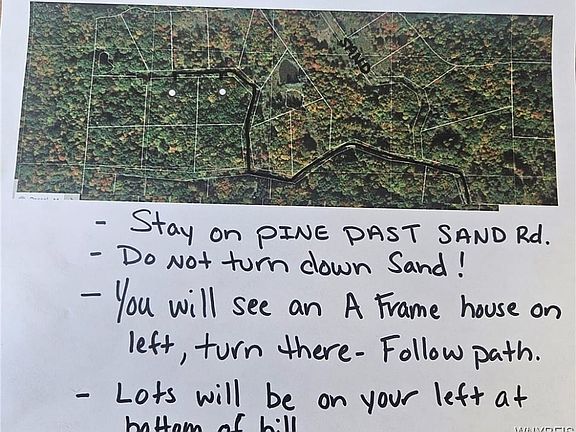 SAND
- Stay on PINE PAST SAND Rd.
- Do Not turn down Sand!
- You will see an A Frame house on
left, turn there- Follow path.
- Lots will be on your left at
bottom of hill
WNYREIS